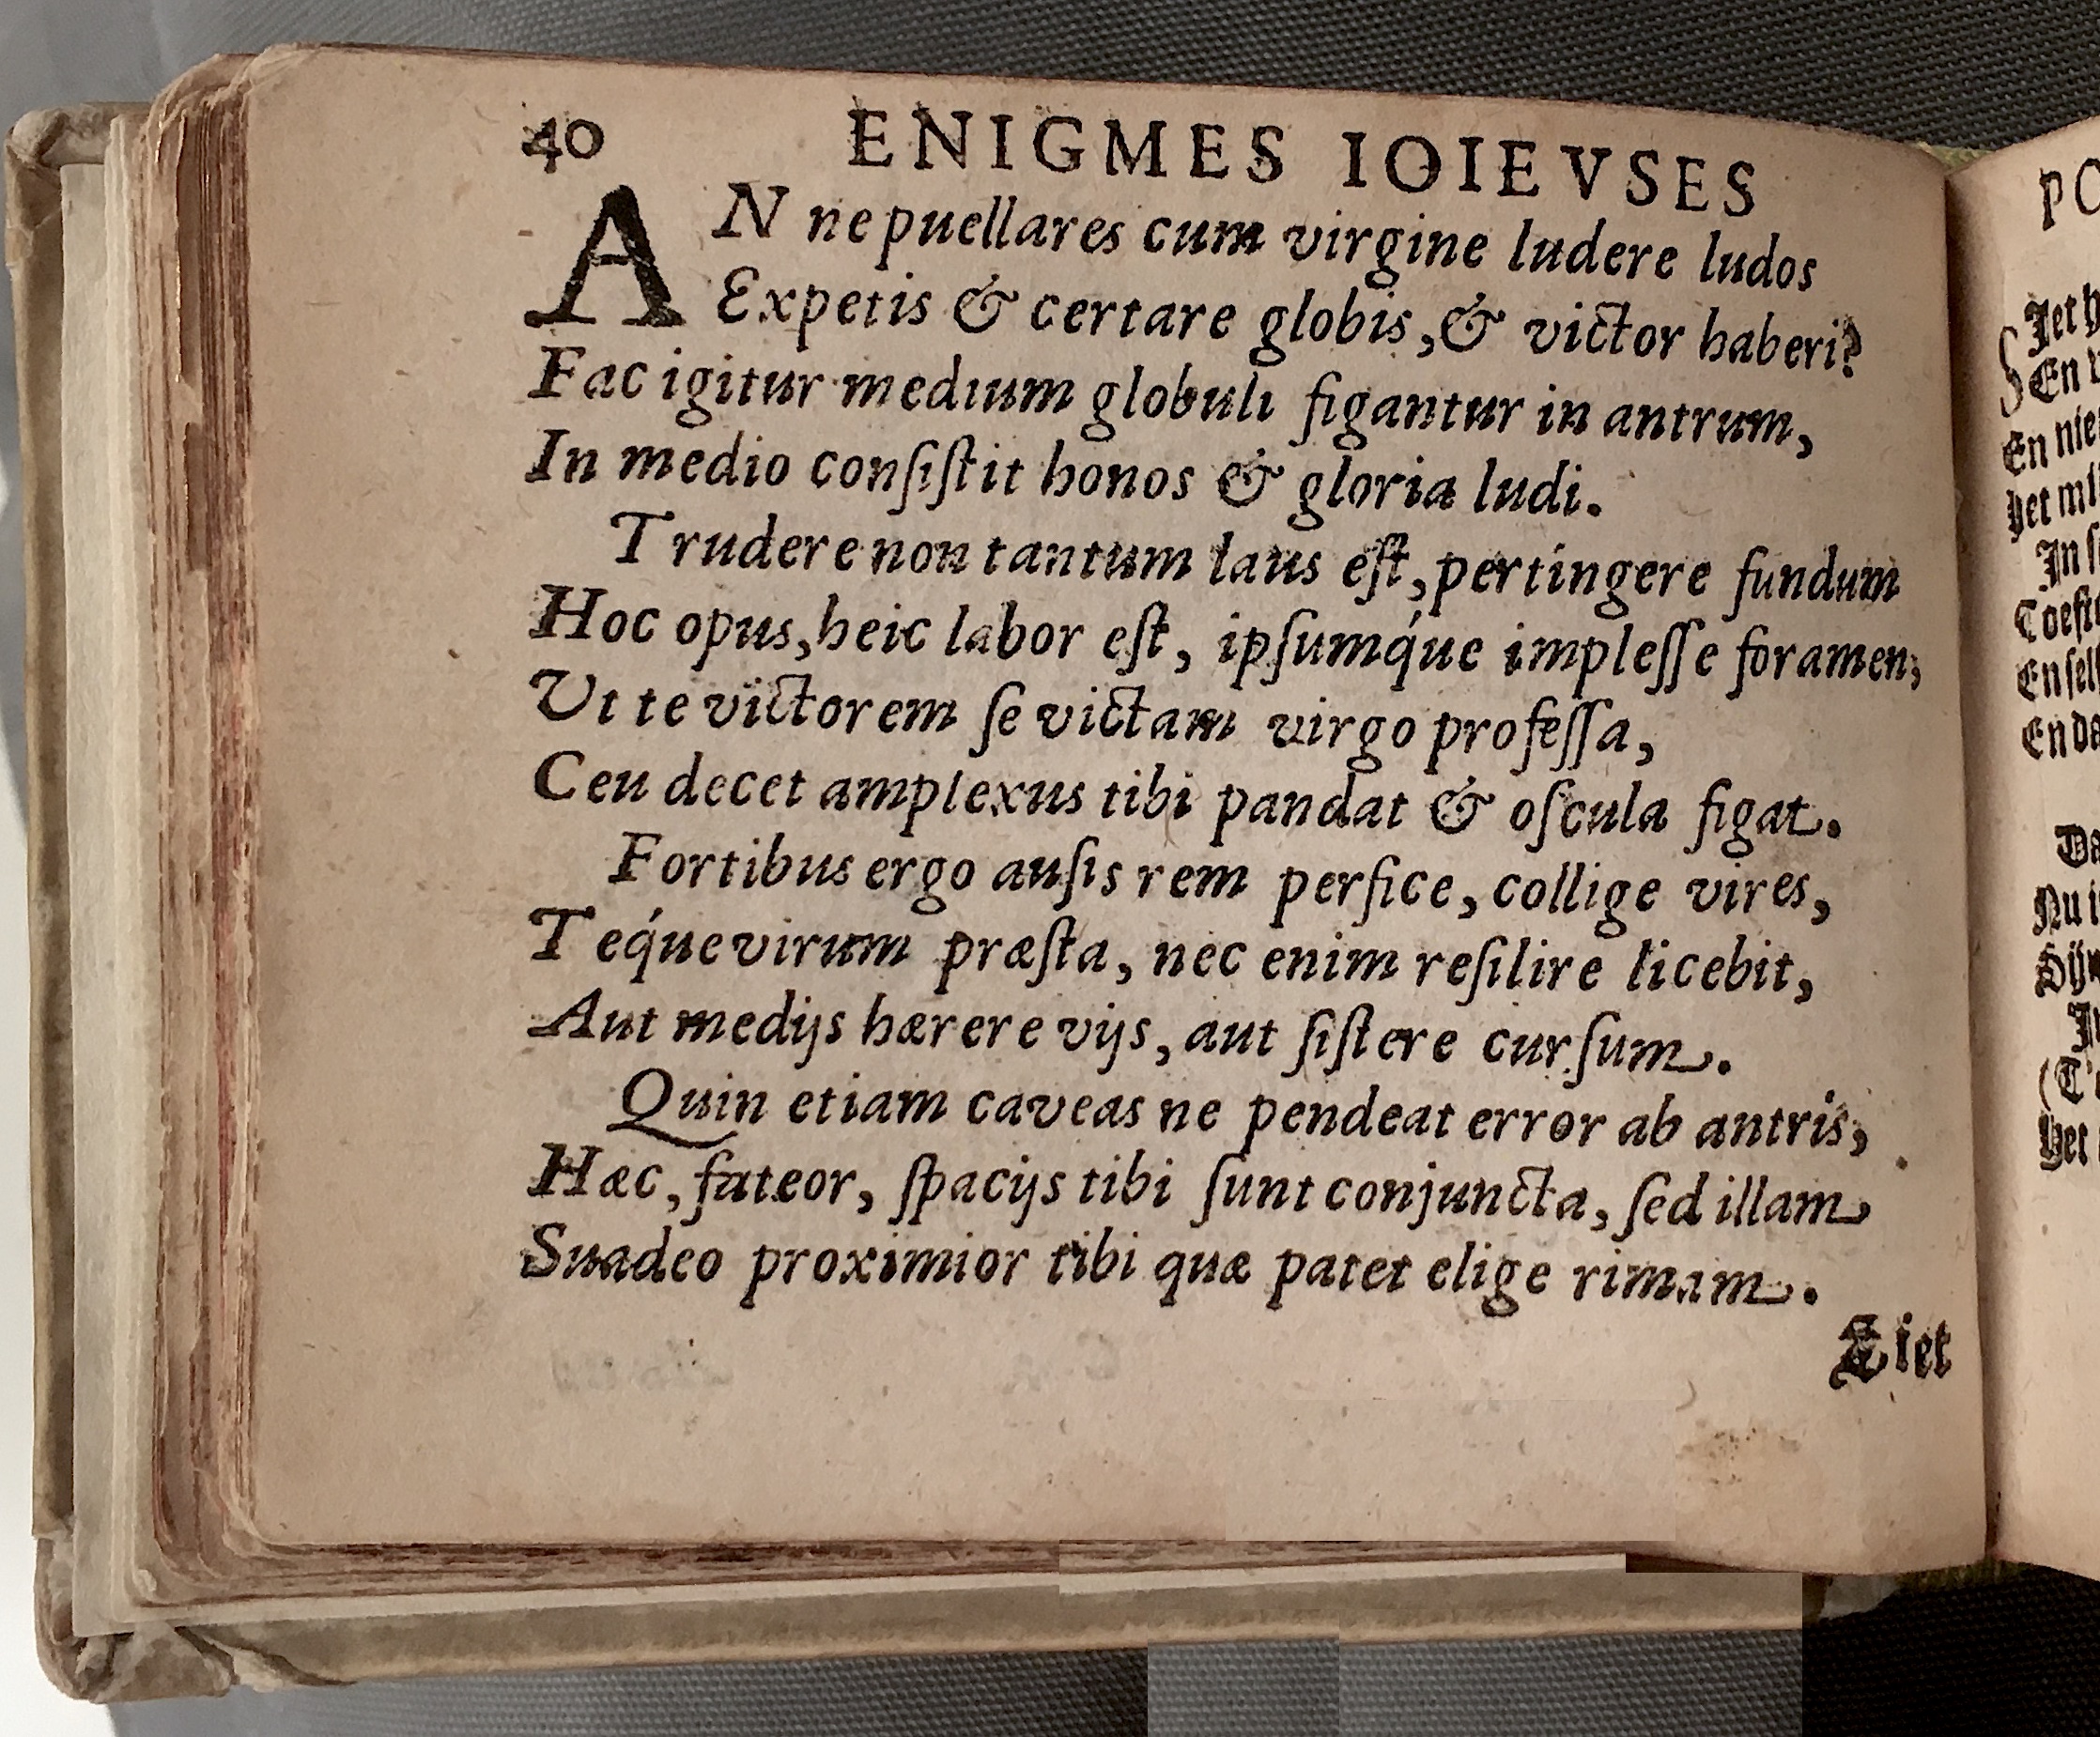 40 ENIGMES IOIEVSES
AN ne puellares cum virgine ludere ludos
Expetis & certare globis, & victor haberi?
Fac igitur medium globuli figantur in antrum,
In medio conſiſtit honos & gloria ludi.
Trudere non tantum laus eſt, pertingere fundum
Hoc opus, heic labor eſt, ipſumq́ue impleſſe foramen,
Ut te victorem ſe victam virgo profeſſa,
Ceu decet amplexus tibi pandat & oſcula figat.
Fortibus ergo auſis rem perfice, collige vires,
Teq́ue virum præſta, nec enim reſilire licebit,
Aut medijs hærere vijs, aut ſiſtere curſum.
Quin etiam caveas ne pendeat error ab antris,
Hæc, fateor, ſpacijs tibi ſunt conjuncta, ſed illam
Suadeo proximior tibi quæ patet elige rimam.
Ziet
PO
En
En nie
In
En